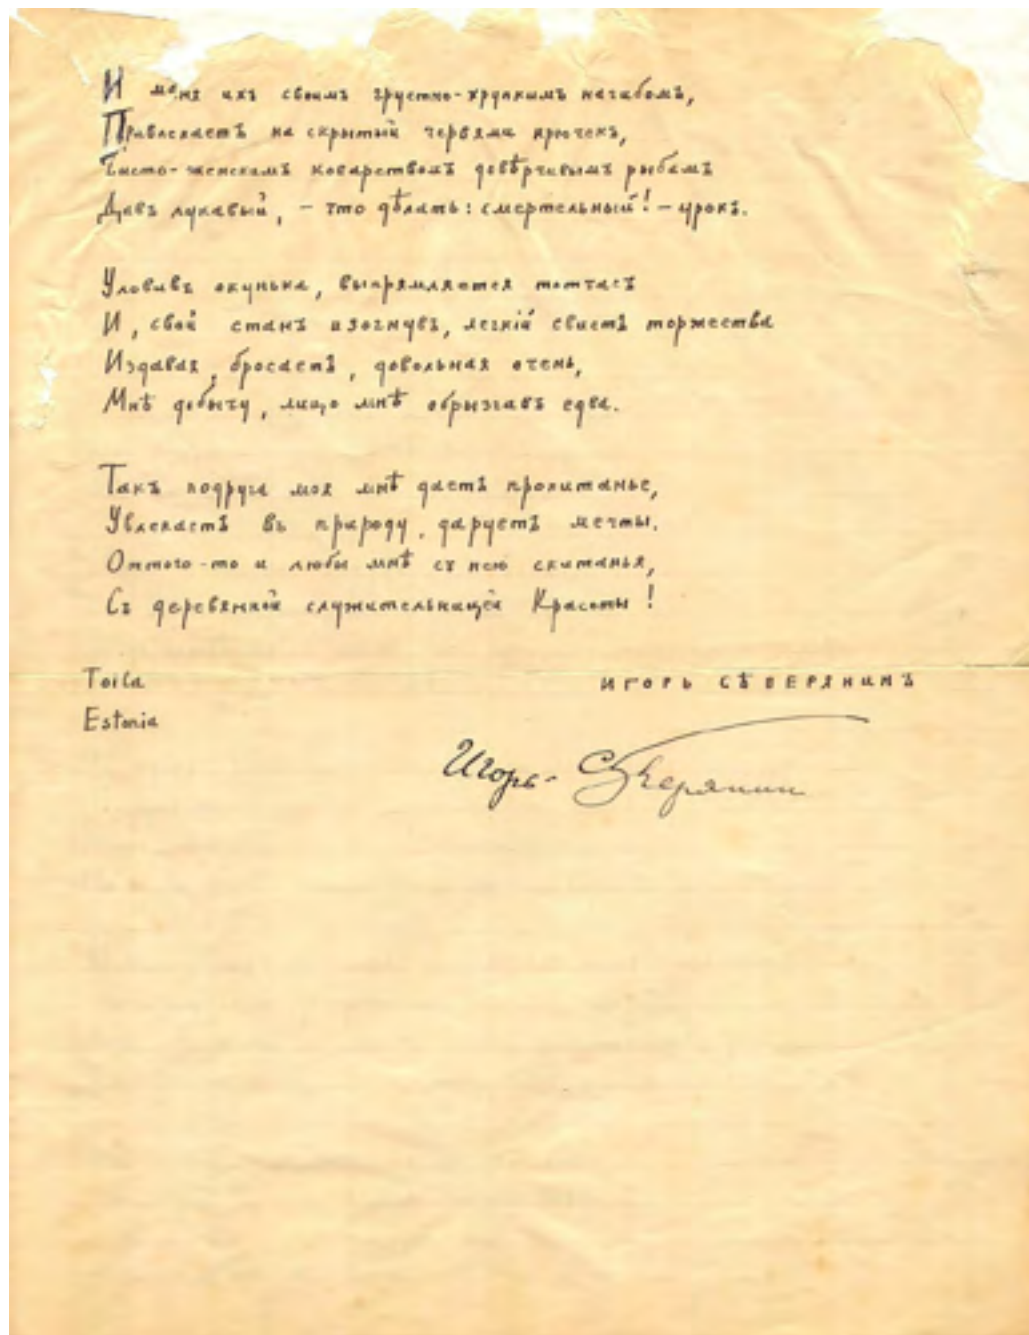 И маня ихъ своимъ грустно-хрупкимъ нагибомъ,
Привлекаетъ на скрытый червями крючекъ,
Чисто-женскимъ коварствомъ довѣрчивымъ рыбамъ
Давъ лукавый, – что дѣлать: смертельный! – урокъ.
Уловивъ окунька, выпрямляется тотчасъ
И, свой станъ изогнувъ, легкій свистъ торжества
Издавая, бросаетъ, довольная очень,
Мнѣ добычу, лицо мнѣ обрызгавъ едва.
Такъ подруга моя мнѣ даетъ пропитанье,
Увлекаетъ въ природу, даруетъ мечты.
Оттого-то и любы мнѣ съ нею скитанья,
Съ деревянной служительницей Красоты!
Toila
ИГОРЬ СѢВЕРЯНИНЪ
Estonia
Игорь-Сѣверянин